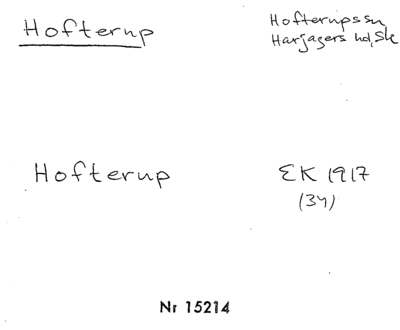 Hofterup
Hofterups sn
Harjagers hd, Sk
Hofterup
EK 1917
(34)
Nr 15214